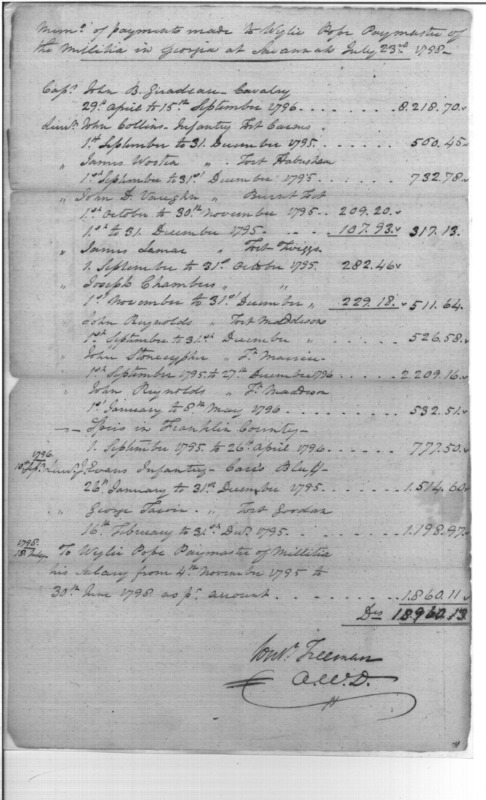 Memo. of payments made to Wylie Pope Paymaster of
the Millitia in Georgia at Savannah July 23rd 1798
Capt. John B. Giradeau Cavalry
29th April to 15th September 1796 . . . . . . . 8.218.70
Lieut. John Collins Infantry Fort
1st September to 31. December 1795 . . . . . . . 550.45
" James " Fort
1st September to 31st December 1795 . . . . . . . 732.78
" John D. Vaughn " Burnt Fort
1st October to 30th November 1795 . . 209.20
1st to 31. December 1795 . . . . 107.93 317.13
" James Lamar " Fort Twiggs
1. September to 31st October 1795. 282.46
" Joseph Chambers " "
1st November to 31st December " 229.18 511.64
John Reynolds " Fort
1st September to 31st December " . . . . . 526.58
" John Stonecypher " Ft.
1st September 1795 to 27th December 1796 . . . . 2.209.16
" John Reynolds " Ft. Maddison
1st January to 8th May 1796 . . . . . . . 532.51
Spies in Franklin County
1. September 1795. to 26th April 1796 . . . . . 777.50
1796
Lieut. J. Evans Infantry Bluff
26th January to 31st December 1795 . . . . . 1.514.60
" George " Fort
16th February to 31st Decr. 1795 . . . . . . 1.198.97
1798.
To Wylie Pope Paymaster of Millitia
his Salary from 4th November 1795 to
30th June 1798 as pr. account . . . . . . . 1.860.11
18.960.13
Freeman
A.W.D.